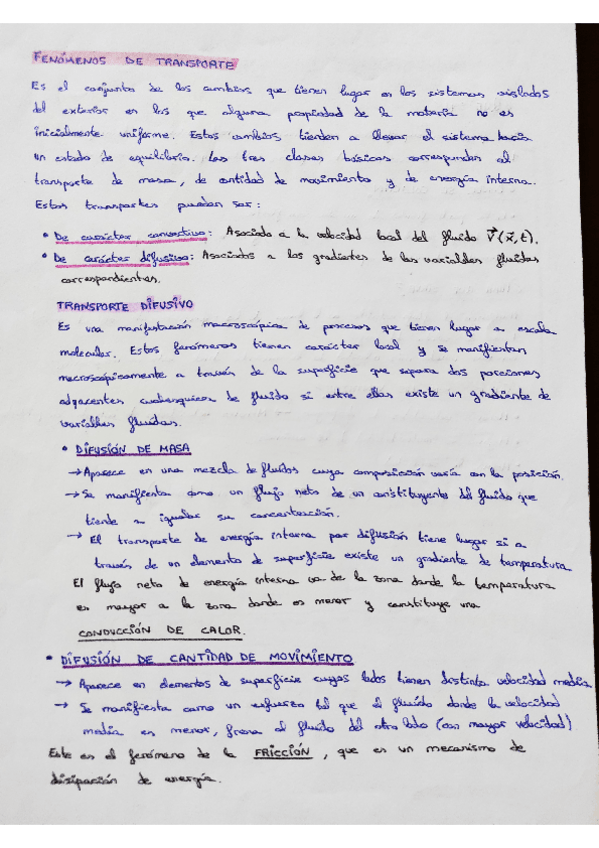 FENÓMENOS DE TRANSPORTE
Es el conjunto de los cambios que tienen lugar en los sistemas aislados
del exterior en los que alguna propiedad de la materia no es
inicialmente uniforme. Estos cambios tienden a llevar el sistema hacia
un estado de equilibrio. Las tres clases básicas corresponden al
transporte de masa, de cantidad de movimiento y de energía interna.
Estos transportes pueden ser:
• De carácter convectivo: Asociado a la velocidad local del fluido V⃗(x⃗,t).
• De carácter difusivo: Asociados a los gradientes de las variables fluidas
correspondientes.
TRANSPORTE DIFUSIVO
Es una manifestación macroscópica de procesos que tienen lugar a escala
molecular. Estos fenómenos tienen carácter local y se manifiestan
macroscópicamente a través de la superficie que separa dos porciones
adyacentes cualesquiera de fluido si entre ellas existe un gradiente de
variables fluidas.
• DIFUSIÓN DE MASA
→ Aparece en una mezcla de fluidos cuya composición varía con la posición.
→ Se manifiesta como un flujo neto de un constituyente del fluido que
tiende a igualar su concentración.
→ El transporte de energía interna por difusión tiene lugar si a
través de un elemento de superficie existe un gradiente de temperatura
El flujo neto de energía interna va de la zona donde la temperatura
es mayor a la zona donde es menor y constituye una
CONDUCCIÓN DE CALOR.
• DIFUSIÓN DE CANTIDAD DE MOVIMIENTO
→ Aparece en elementos de superficie cuyos lados tienen distinta velocidad media
→ Se manifiesta como un esfuerzo tal que el fluido donde la velocidad
media es menor, frena al fluido del otro lado (con mayor velocidad)
Este es el fenómeno de la FRICCIÓN, que es un mecanismo de
disipación de energía.